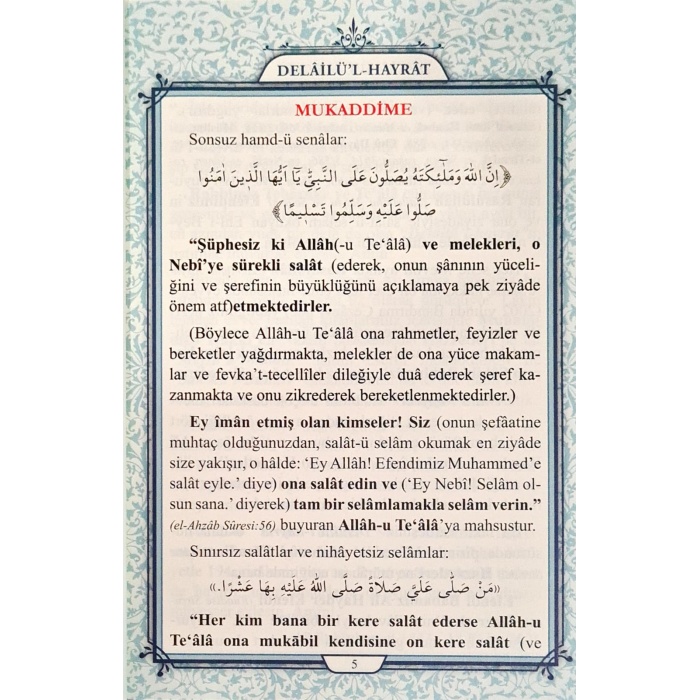 DELÂİLÜ’L-HAYRÂT
MUKADDİME
Sonsuz hamd-ü senâlar:
﴿اِنَّ اللهَ وَمَلٰٓئِكَتَهُ يُصَلُّونَ عَلَى النَّبِيِّ يَٓا اَيُّهَا الَّذِينَ اٰمَنُوا
صَلُّوا عَلَيْهِ وَسَلِّمُوا تَسْلِيمًا﴾
“Şüphesiz ki Allâh(-u Te‘âlâ) ve melekleri, o
Nebî’ye sürekli salât (ederek, onun şânının yüceli-
ğini ve şerefinin büyüklüğünü açıklamaya pek ziyâde
önem atf)etmektedirler.
(Böylece Allâh-u Te‘âlâ ona rahmetler, feyizler ve
bereketler yağdırmakta, melekler de ona yüce makam-
lar ve fevka’t-tecellîler dileğiyle duâ ederek şeref ka-
zanmakta ve onu zikrederek bereketlenmektedirler.)
Ey îmân etmiş olan kimseler! Siz (onun şefâatine
muhtaç olduğunuzdan, salât-ü selâm okumak en ziyâde
size yakışır, o hâlde: ‘Ey Allâh! Efendimiz Muhammed’e
salât eyle.’ diye) ona salât edin ve (‘Ey Nebî! Selâm ol-
sun sana.’ diyerek) tam bir selâmlamakla selâm verin.”
(el-Ahzâb Sûresi:56) buyuran Allâh-u Te‘âlâ’ya mahsustur.
Sınırsız salâtlar ve nihâyetsiz selâmlar:
«مَنْ صَلَّى عَلَيَّ صَلَاةً صَلَّى اللهُ عَلَيْهِ بِهَا عَشْرًا.»
“Her kim bana bir kere salât ederse Allâh-u
Te‘âlâ ona mukâbil kendisine on kere salât (ve
5